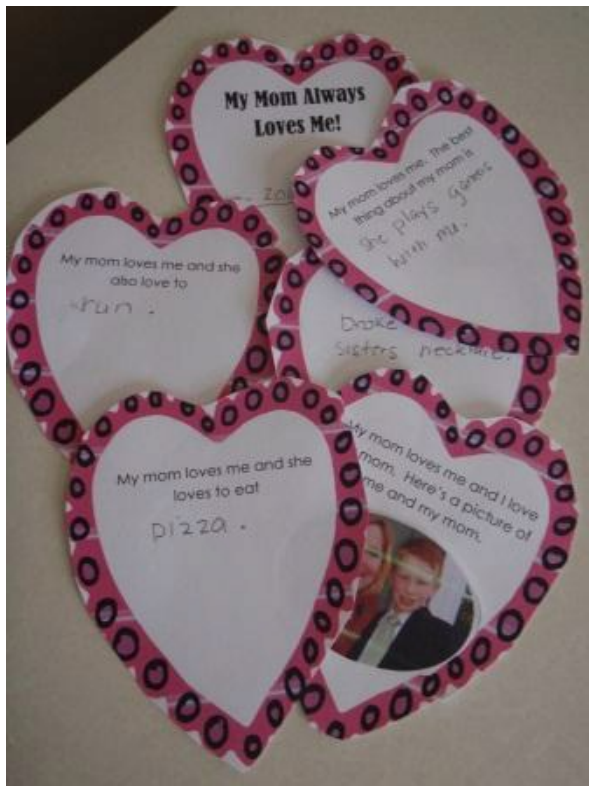 My Mom Always
Loves Me!
My mom loves me. The best
thing about my mom is
she plays games
with me.
My mom loves me and she
also love to
run.
sisters necklace.
My mom loves me and she
loves to eat
pizza.
My mom loves me and I love
mom. Here's a picture of
me and my mom.